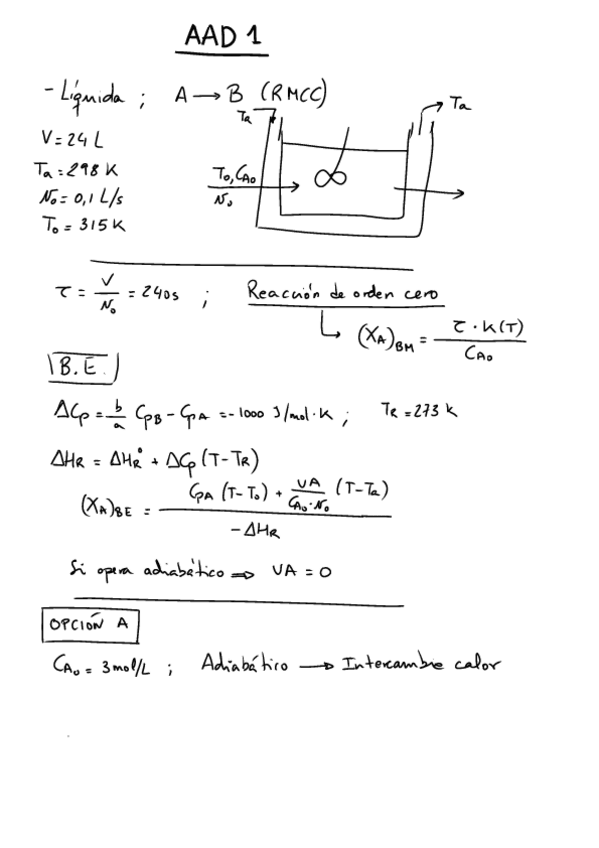 AAD 1
- Líquida ; A → B (RMCC)
Ta
Ta
V = 24 L
Ta = 298 K
N₀ = 0,1 L/s
T₀ = 315 K
T₀, CA₀
N₀
τ = V/N₀ = 240s ; Reacción de orden cero
↳ (XA)BM = τ · K(T) / CA₀
B.E.
ΔCp = b/a CpB - CpA = -1000 J/mol·K ; TR = 273 K
ΔHR = ΔHR° + ΔCp (T-TR)
(XA)BE = CpA (T-T₀) + UA/CA₀·N₀ (T-Ta) / -ΔHR
Si opera adiabático ⇒ UA = 0
OPCIÓN A
CA₀ = 3 mol/L ; Adiabático → Intercambie calor